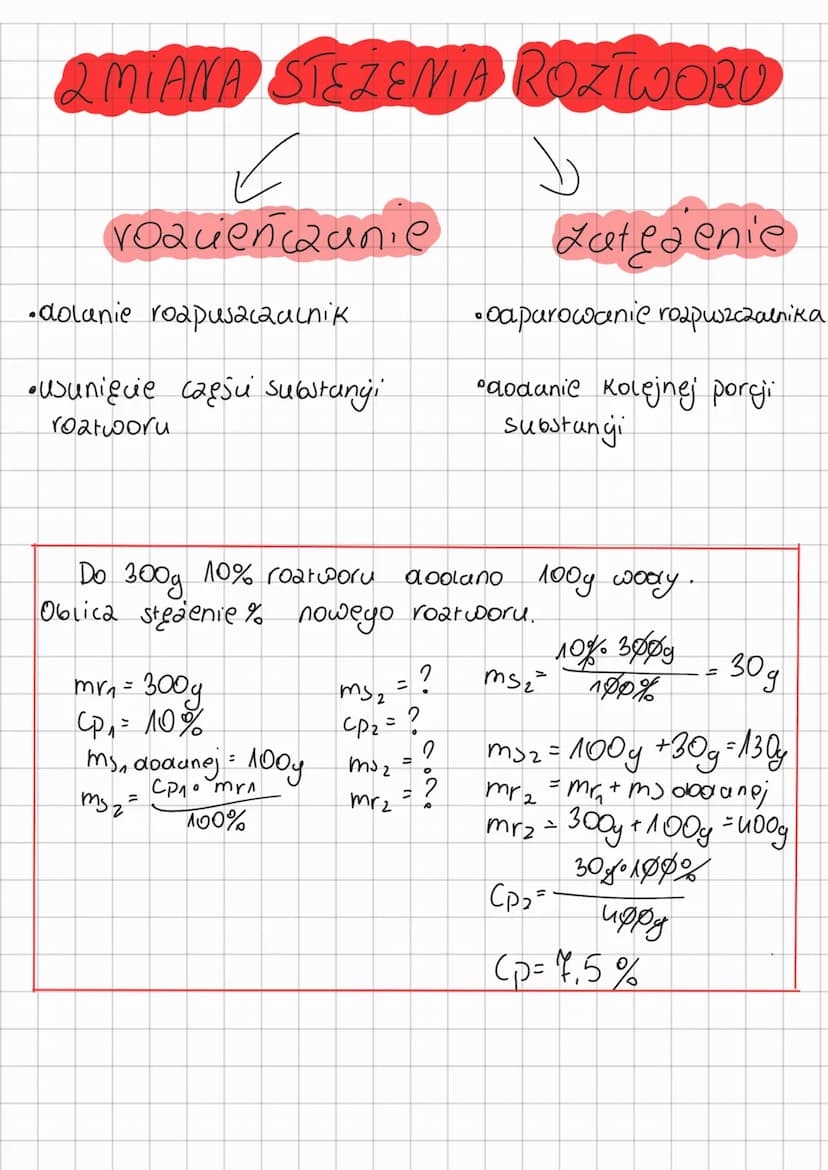 ZMIANA STĘŻENIA ROZTWORU
rozcieńczanie
zatężenie
•dolanie rozpuszczalnik
•usunięcie części substancji
roztworu
•odparowanie rozpuszczalnika
•dodanie kolejnej porcji
substancji
Do 300g 10% roztworu dodano 100g wody.
Oblicz stężenie % nowego roztworu.
mr₁ = 300g
Cp₁ = 10%
ms₁ dodanej = 100g
ms₂ = Cp₁ • mr₁
100%
ms₂ = ?
cp₂ = ?
ms₂ = ?
mr₂ = ?
ms₂ = 10% • 300g = 30g
100%
ms₂ = 100g + 30g = 130g
mr₂ = mr₁ + ms dodanej
mr₂ = 300g + 100g = 400g
Cp₂ = 30g • 100%
400g
Cp = 7,5 %